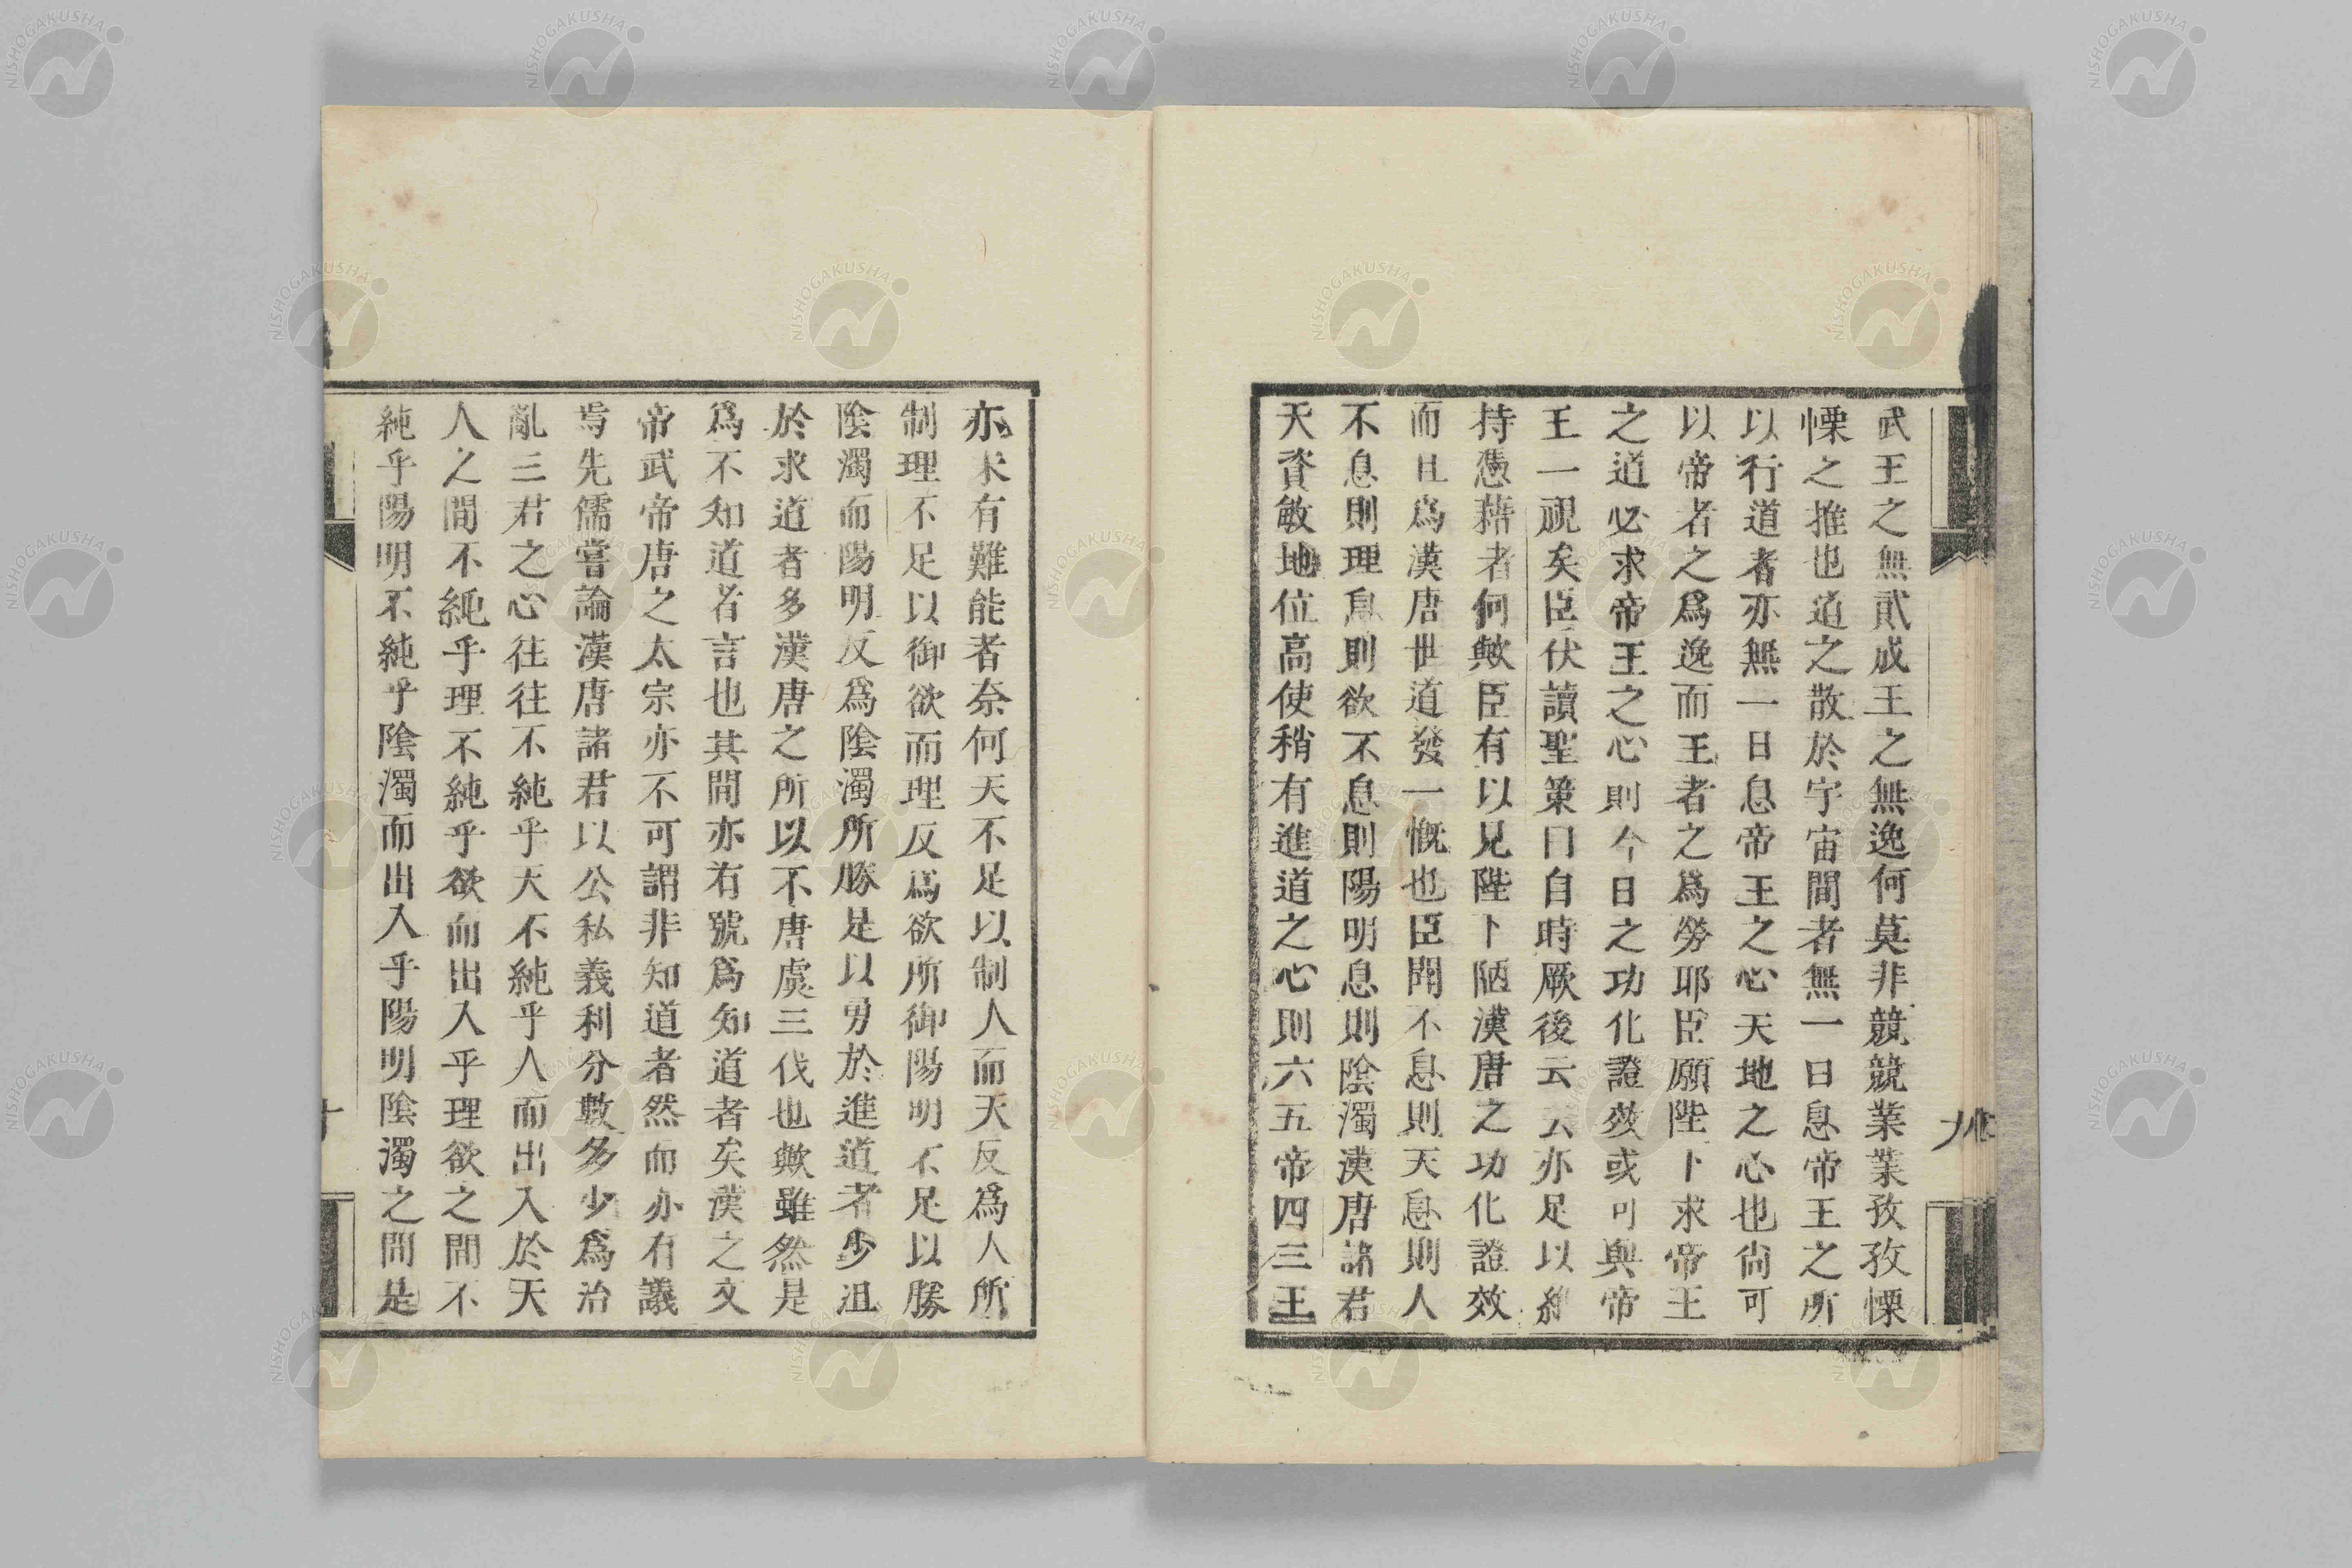 武王之無貳成王之無逸何莫非兢兢業業孜孜慄
慄之推也道之散於宇宙間者無一日息帝王之所
以行道者亦無一日息帝王之心天地之心也尚可
以帝者之爲逸而王者之爲勞耶臣願陛下求帝王
之道必求帝王之心則今日之功化證效或可與帝
王一視矣臣伏讀聖策曰自時厥後云云亦足以維
持憑藉者何歟臣有以見陛下陋漢唐之功化證效
而且爲漢唐世道發一慨也臣聞不息則天息則人
不息則理息則欲不息則陽明息則陰濁漢唐諸君
天資敏地位高使稍有進道之心則六五帝四三王
亦未有難能者奈何天不足以制人而天反爲人所
制理不足以御欲而理反爲欲所御陽明不足以勝
陰濁而陽明反爲陰濁所勝是以勇於進道者少沮
於求道者多漢唐之所以不唐虞三代也歟雖然是
爲不知道者言也其間亦有號爲知道者矣漢之文
帝武帝唐之太宗亦不可謂非知道者然而亦有議
焉先儒嘗論漢唐諸君以公私義利分數多少爲治
亂三君之心往往不純乎天不純乎人而出入於天
人之間不純乎理不純乎欲而出入乎理欲之間不
純乎陽明不純乎陰濁而出入乎陽明陰濁之間是
九
十
NISHOGAKUSHA